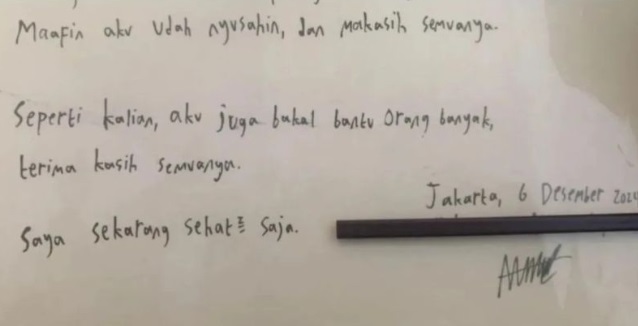 Maafin aku udah nyusahin, dan makasih semuanya.
Seperti kalian, aku juga bakal bantu orang banyak,
terima kasih semuanya.
Jakarta, 6 Desember 202
Saya sekarang sehat² saja.